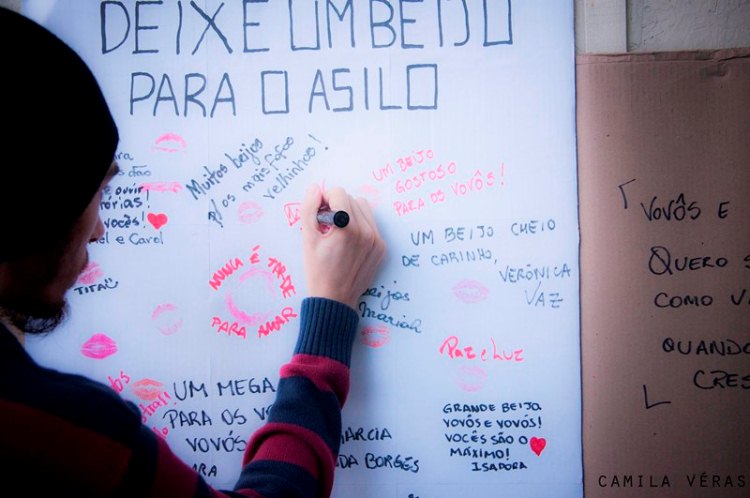 DEIXE UM BEIJO
PARA O ASILO
Muitos beijos
p/ os mais fofos
velhinhos!
UM BEIJO
GOSTOSO
PARA OS VOVÔS!
ouvir
vocês!
el e Carol
TITA
NUNCA É TARDE
PARA AMAR
UM BEIJO CHEIO
DE CARINHO,
VERÔNICA
VAZ
Beijos
Mariah
PAZ e LUZ
UM MEGA
PARA OS VO
VOVÓS
MARCIA
DA BORGES
GRANDE BEIJO
VOVÓS E VOVÔS!
VOCÊS SÃO O
MÁXIMO!
ISADORA
VOVÔS E
QUERO
COMO V
QUANDO
CRES
CAMILA VÉRAS